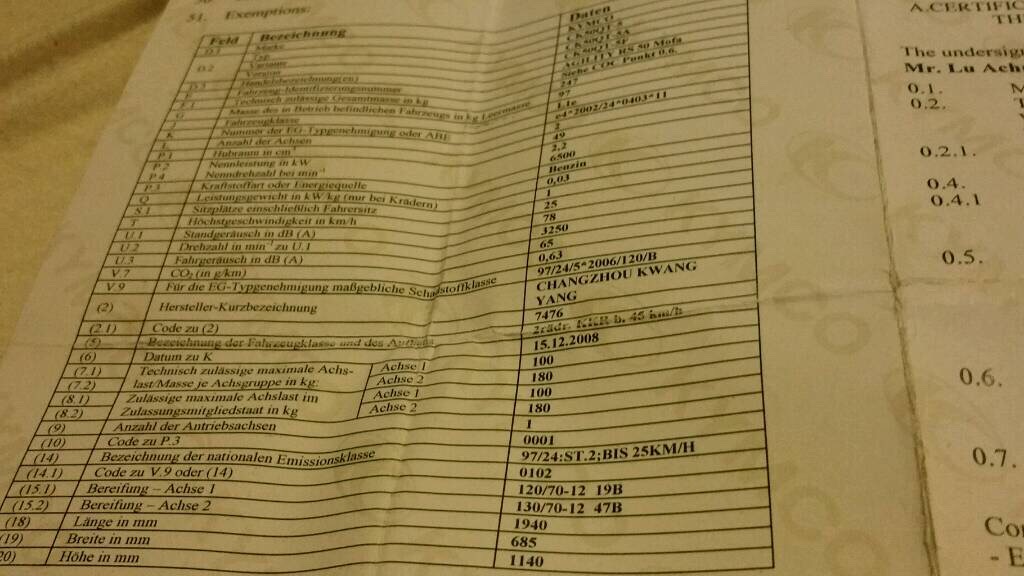 51. Exemptions:
Feld Bezeichnung Daten
D.1 Marke KYMCO
Typ
D.2 Variante
Version
D.3 Handelsbezeichnung(en) AGILITY RS 50 Mofa
Fahrzeug-Identifizierungsnummer Siehe COC Punkt 0.6.
F.1 Technisch zulässige Gesamtmasse in kg 247
G Masse des in Betrieb befindlichen Fahrzeugs in kg Leermasse 97
Fahrzeugklasse L1e
K Nummer der EG-Typgenehmigung oder ABE e4*2002/24*0403*11
L Anzahl der Achsen 2
P.1 Hubraum in cm³ 49
P.2 Nennleistung in kW 2,2
P.4 Nenndrehzahl bei min⁻¹ 6500
P.3 Kraftstoffart oder Energiequelle Benzin
Q Leistungsgewicht in kW/kg (nur bei Krädern) 0,03
S.1 Sitzplätze einschließlich Fahrersitz 1
T Höchstgeschwindigkeit in km/h 25
U.1 Standgeräusch in dB (A) 78
U.2 Drehzahl in min⁻¹ zu U.1 3250
U.3 Fahrgeräusch in dB (A) 65
V.7 CO₂ (in g/km) 0,63
V.9 Für die EG-Typgenehmigung maßgebliche Schadstoffklasse 97/24/5*2006/120/B
(2) Hersteller-Kurzbezeichnung CHANGZHOU KWANG
YANG
(2.1) Code zu (2) 7476
(5) Bezeichnung der Fahrzeugklasse und des Aufbaus 2rädr. KKR b. 45 km/h
(6) Datum zu K 15.12.2008
(7.1) Technisch zulässige maximale Achs- Achse 1 100
(7.2) last/Masse je Achsgruppe in kg: Achse 2 180
(8.1) Zulässige maximale Achslast im Achse 1 100
(8.2) Zulassungsmitgliedstaat in kg Achse 2 180
(9) Anzahl der Antriebsachsen 1
(10) Code zu P.3 0001
(14) Bezeichnung der nationalen Emissionsklasse 97/24:ST.2;BIS 25KM/H
(14.1) Code zu V.9 oder (14) 0102
(15.1) Bereifung – Achse 1 120/70-12 19B
(15.2) Bereifung – Achse 2 130/70-12 47B
(18) Länge in mm 1940
(19) Breite in mm 685
20) Höhe in mm 1140
A.CERTIFIC
TH
The undersig
Mr. Lu Achs
0.1. M
0.2. T
V
0.2.1.
0.4.
0.4.1
0.5.
0.6.
0.7.
Co
- E